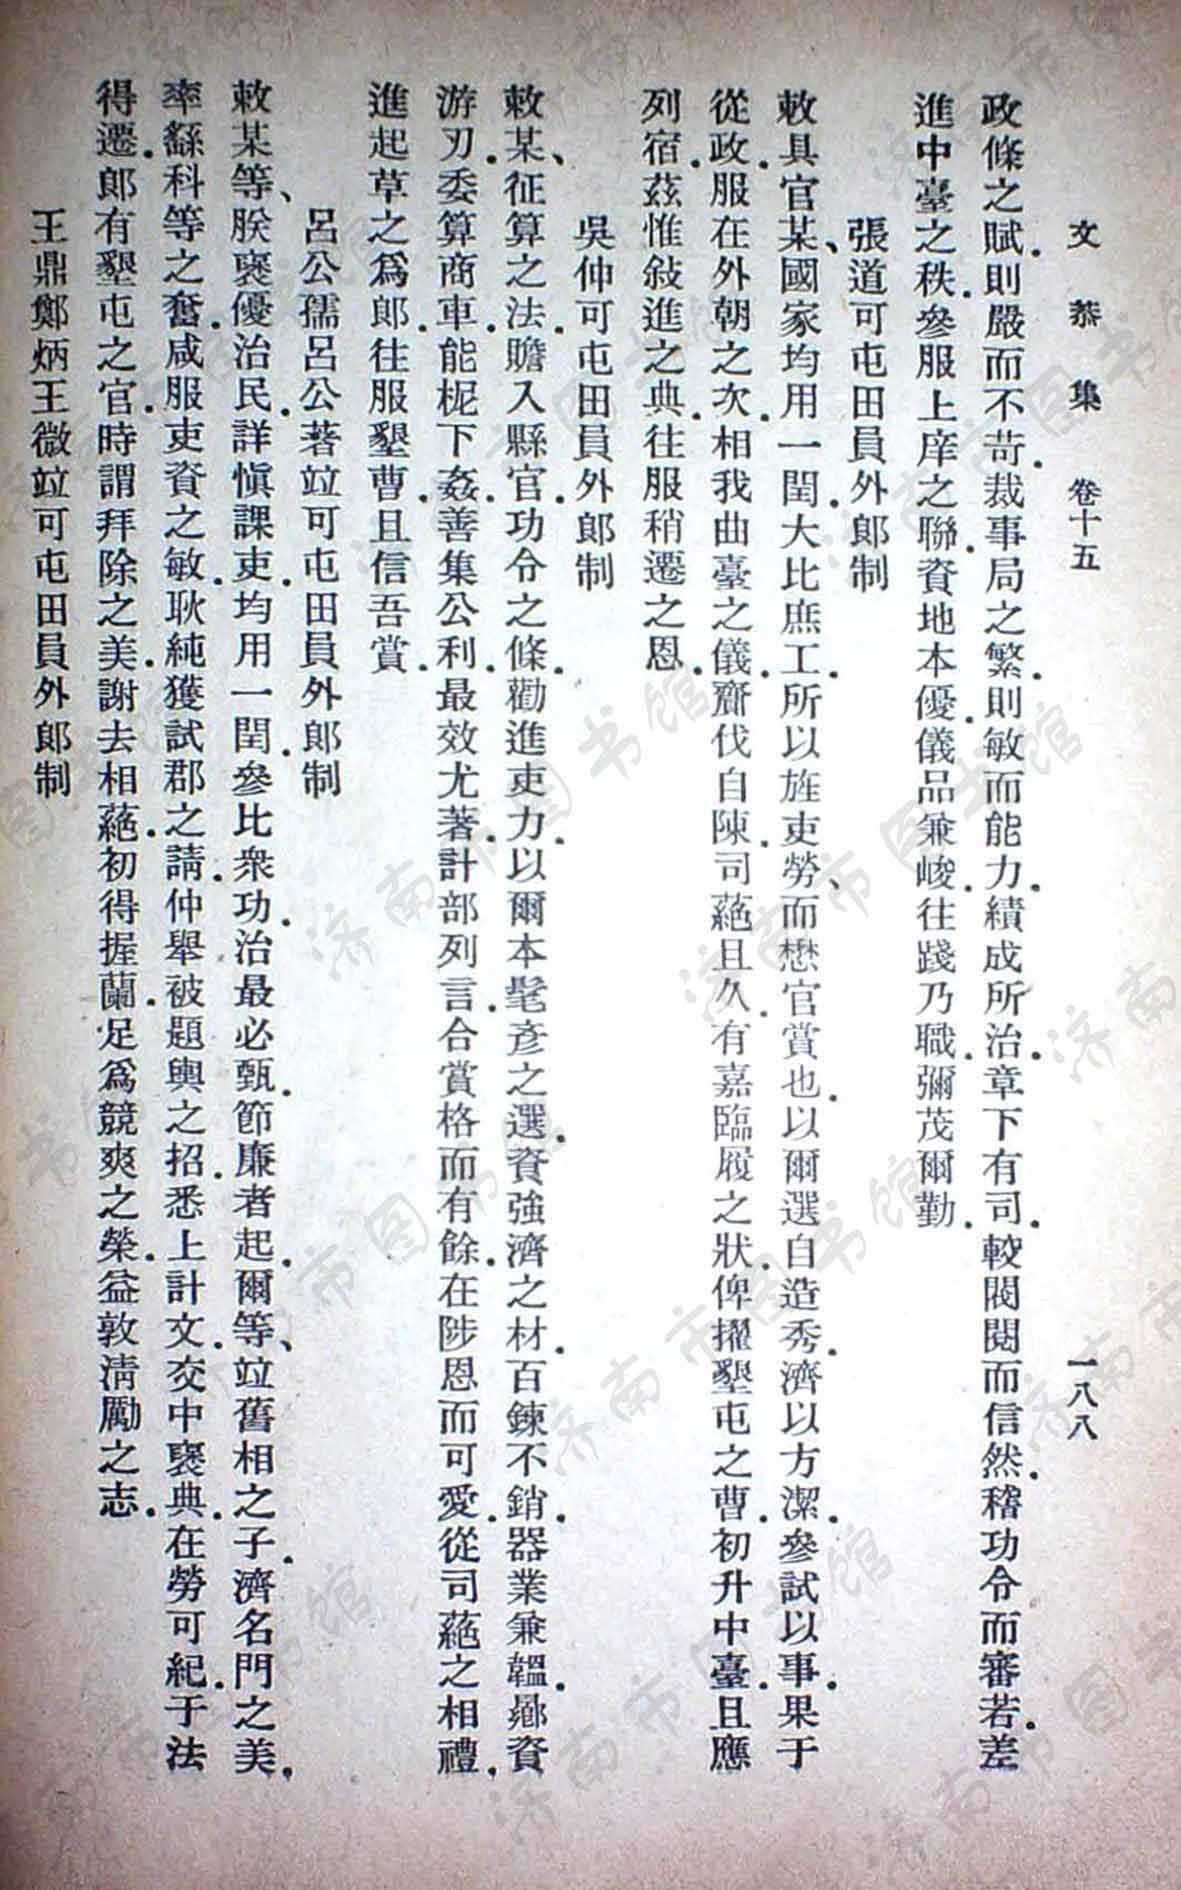 文恭集 卷十五 一八八
政條之賦．則嚴而不苛．裁事局之繁．則敏而能力．績成所治．章下有司．較閥閱而信然．稽功令而審若．差
進中臺之秩．參服上庠之聯．資地本優．儀品兼峻．往踐乃職．彌茂爾勤．
張道可屯田員外郎制
敕具官某、國家均用一閏．大比庶工．所以旌吏勞、而懋官賞也．以爾選自造秀．濟以方潔．參試以事．果于
從政．服在外朝之次．相我曲臺之儀．齎伐自陳．司蕝且久．有嘉臨履之狀．俾擢墾屯之曹．初升中臺．且應
列宿．茲惟敍進之典．往服稍遷之恩．
吳仲可屯田員外郎制
敕某、征算之法．贍入縣官．功令之條．勸進吏力．以爾本髦彥之選．資強濟之材．百鍊不銷．器業兼韞．歸資
游刃．委算商車．能柅下姦．善集公利．最效尤著．計部列言．合賞格而有餘．在陟恩而可愛．從司蕝之相禮．
進起草之爲郎．往服墾曹．且信吾賞．
呂公孺呂公著竝可屯田員外郎制
敕某等、朕褒優治民．詳愼課吏．均用一閏．參比衆功．治最必甄．節廉者起．爾等、竝舊相之子．濟名門之美．
率繇科等之奮．咸服吏資之敏．耿純獲試郡之請．仲舉被題輿之招．悉上計文．交中褒典．在勞可紀．于法
得遷．郞有墾屯之官．時謂拜除之美．謝去相蕝．初得握蘭．足爲競爽之榮．益敦淸勵之志．
王鼎鄭炳王微竝可屯田員外郎制